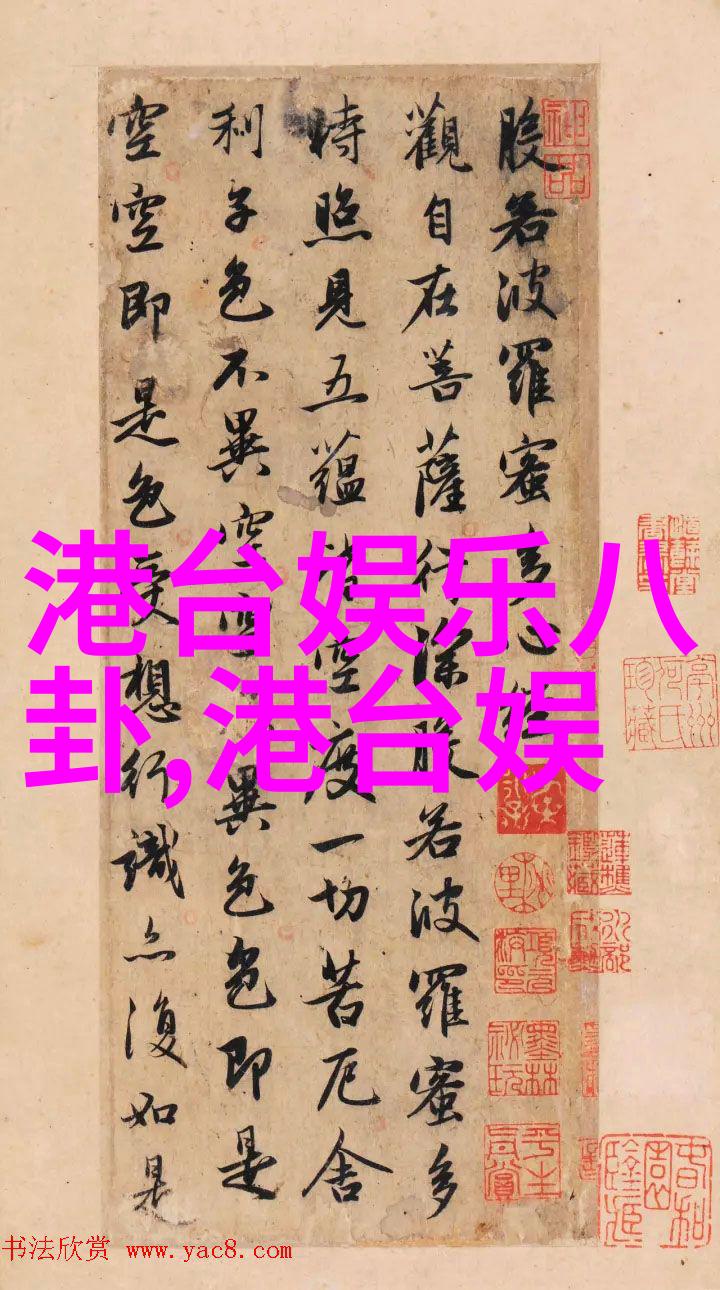 般若波羅蜜多心經
觀自在菩薩行深般若波羅蜜多
時照見五蘊皆空度一切苦厄舍
利子色不異空空不異色色即是
空空即是色受想行識亦復如是
港台娱乐八
卦,港台娱
神品
墨林祕玩
书法欣赏 www.yac8.com